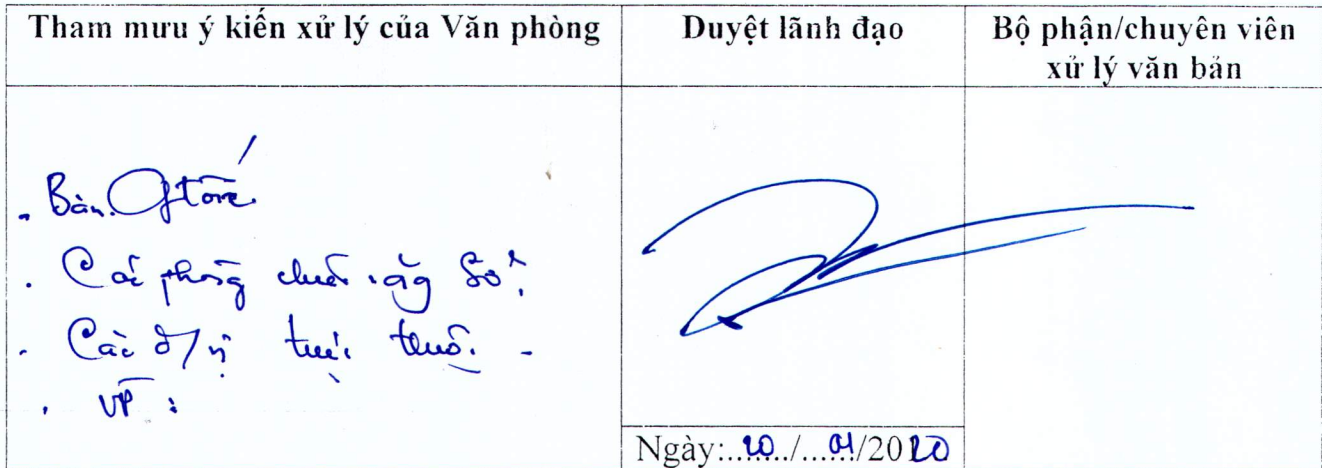 Tham mưu ý kiến xử lý của Văn phòng
Duyệt lãnh đạo
Bộ phận/chuyên viên
xử lý văn bản
. Ban
. Các phòng chức năng Sở;
. Các đ/vị trực thuộc. -
. VP :
Ngày:..20../...01/2020